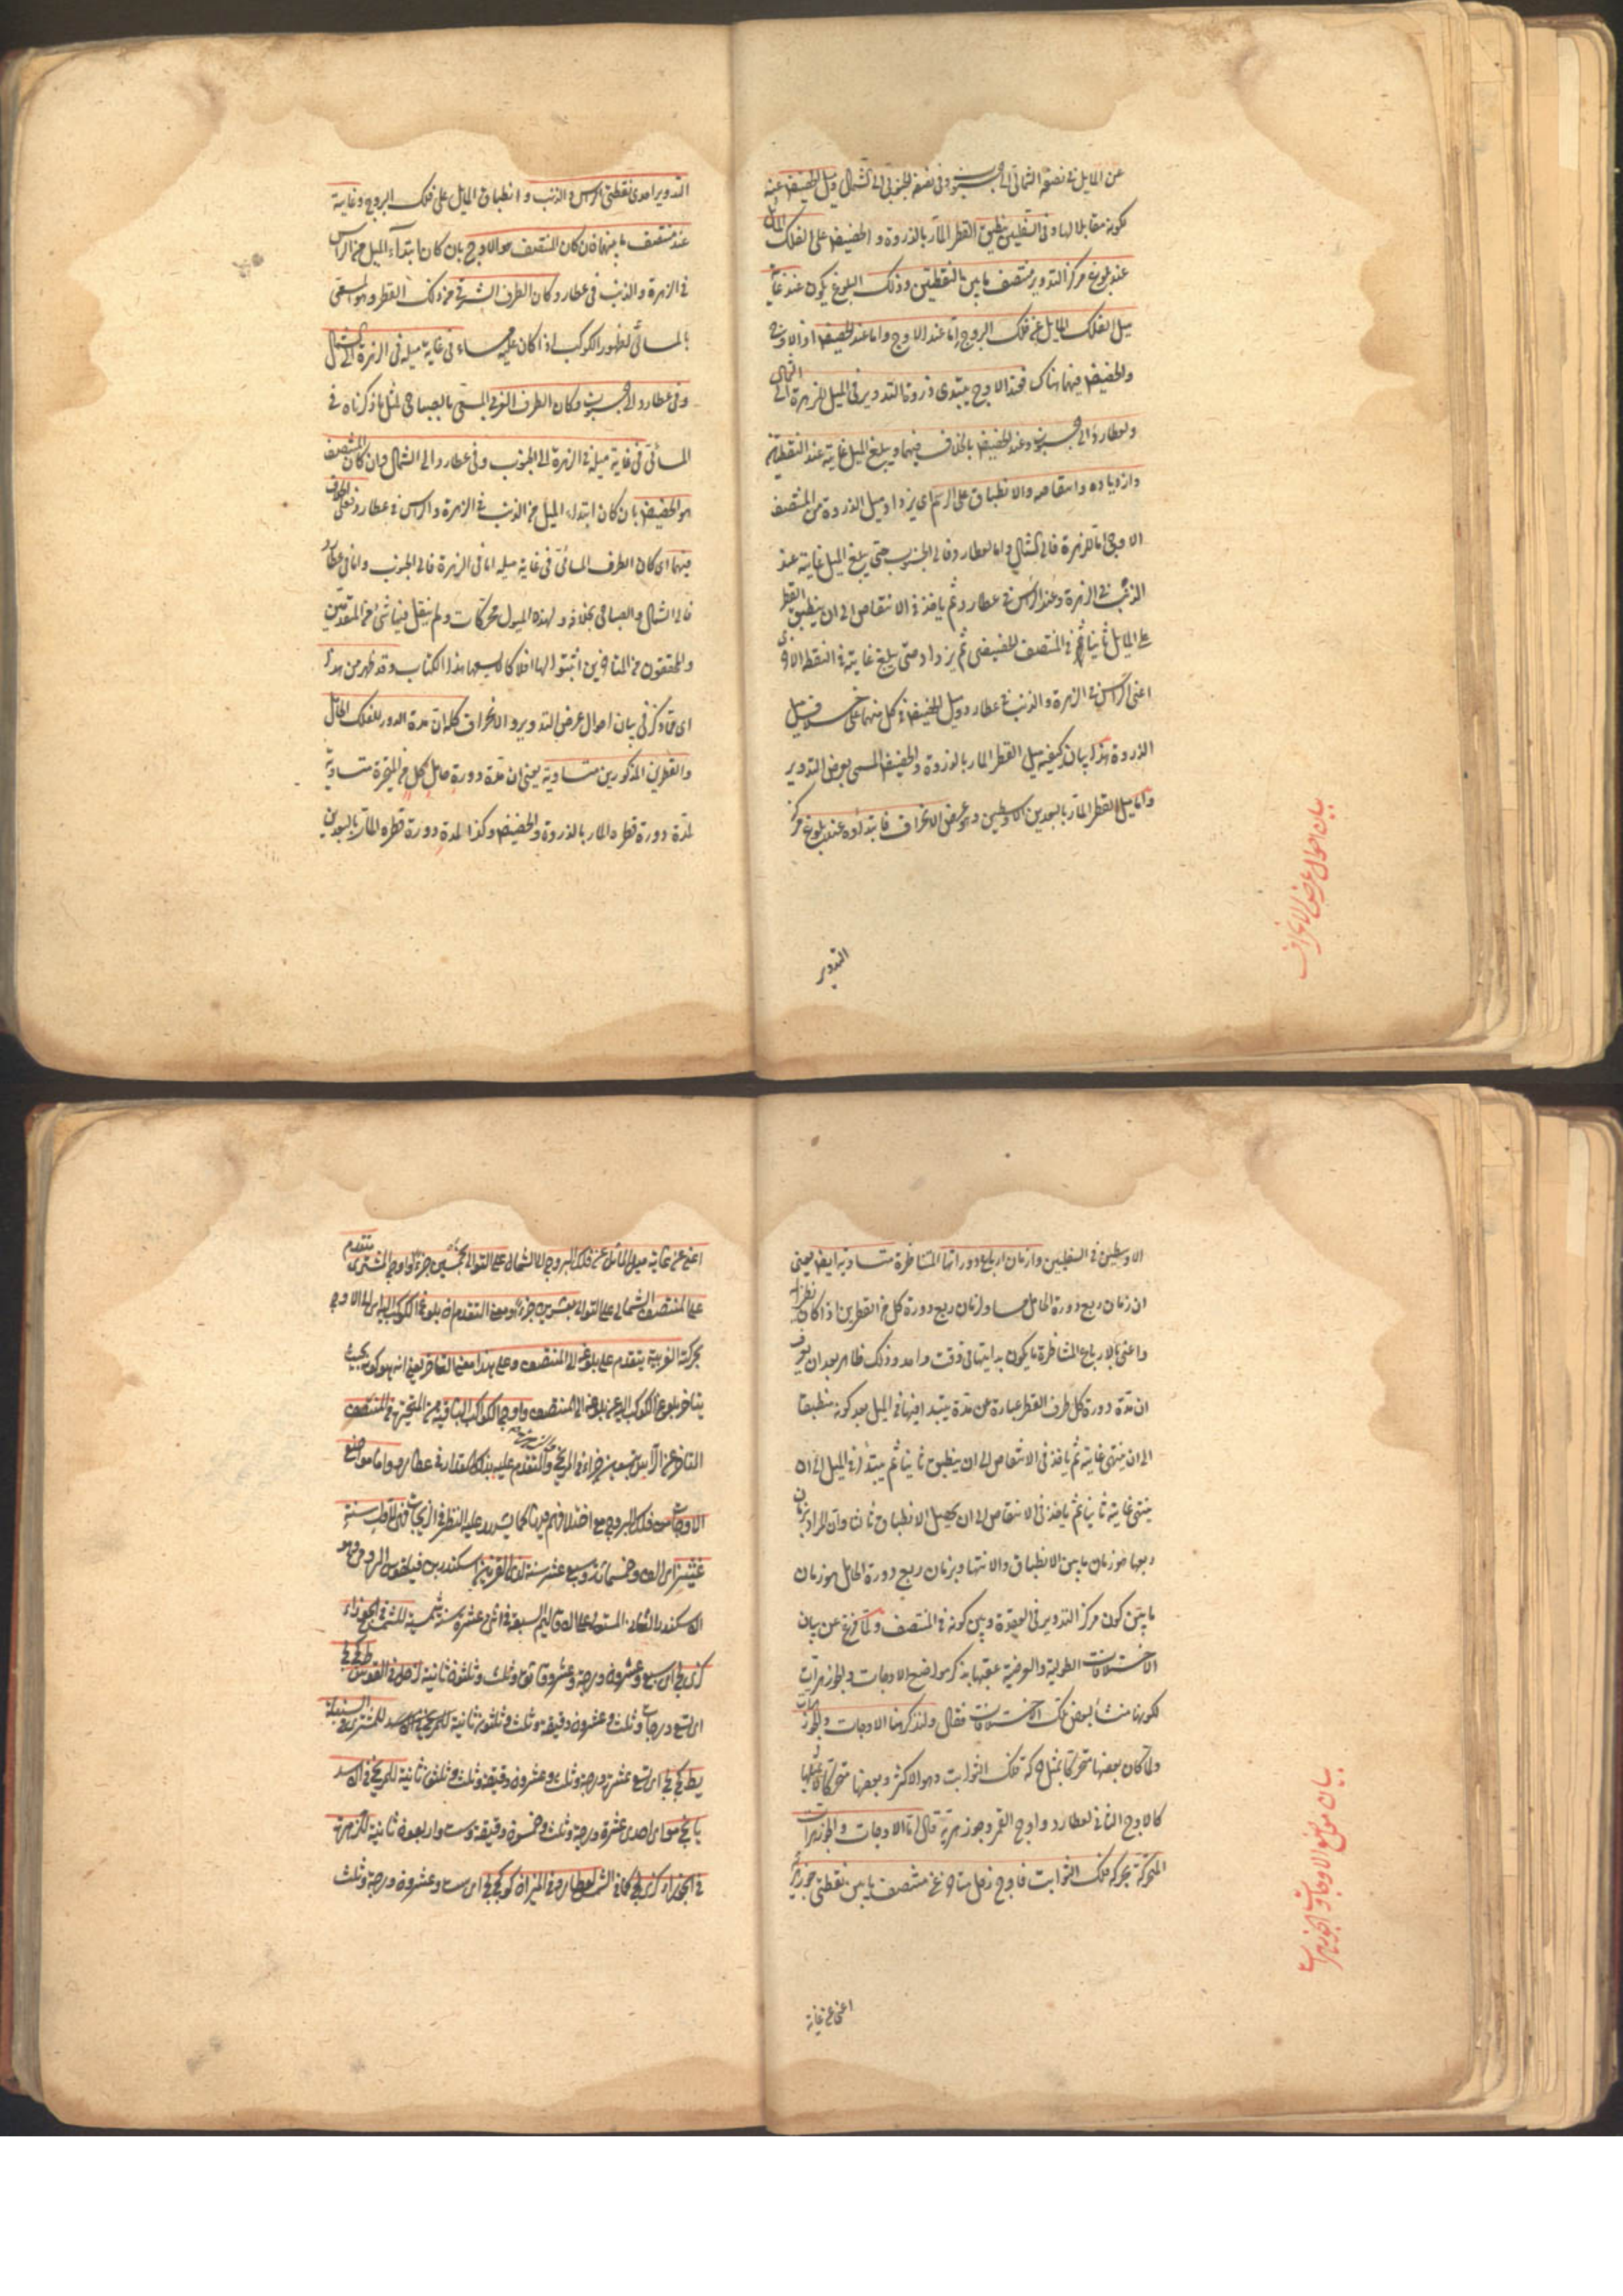 عن المايل في نصفه الشمالي الى الجنوب وفي نصفه الجنوبي الى الشمال وميل الحضيض عنه
لكونه مقابلا لها وفي السفليين ينطبق القطر المار بالذروة والحضيض على الفلك المائل
عند بلوغ مركز التدوير منتصف ما بين النقطتين وذلك البلوغ يكون عند غاية
ميل الفلك المايل عن فلك البروج اما عند الاوج واما عند الحضيض اذ الاوج
والحضيض فيهما هناك فعند الاوج يبتدى ذروة التدوير في الميل للزهرة الى الشمال
ولعطارد الى الجنوب وعند الحضيض بالخلاف فيهما ويبلغ الميل غايته عند النقطتين
وازدياده وانتقاصه والانطباق على الرسم اى يزداد ميل الذروة من المنتصف
الاوجى اما للزهرة فالى الشمال واما لعطارد فالى الجنوب حتى يبلغ الميل غايته عند
الذنب في الزهرة وعند الرأس في عطارد ثم ياخذ في الانتقاص الى ان ينطبق القطر
على المايل ثانيا في المنتصف الحضيضى ثم يزداد حتى يبلغ غايته في النقطة الاخرى
اعنى الرأس في الزهرة والذنب في عطارد وميل الحضيض في كل منهما على خلاف ميل
الذروة هذا بيان كيفية ميل القطر المار بالذروة والحضيض المسمى بعرض التدوير
واما ميل القطر المار بالبعدين الاوسطين وهو عرض الانحراف فابتداؤه عند بلوغ مركز
بيان احوال عرض الانحراف
التدوير
التدوير احدى نقطتى الراس والذنب وانطباق المايل على فلك البروج وغايته
عند منتصف ما بينهما فان كان المنتصف هو الاوج بان كان ابتداء الميل من الراس
في الزهرة والذنب في عطارد كان الطرف الشرقى من ذلك القطر وهو المسمى
بالمسائى لظهور الكوكب اذا كان عليه مساء في غاية ميله في الزهرة الى الشمال
وفي عطارد الى الجنوب وكان الطرف الغربى المسمى بالصباحى لمثل ما ذكرناه في
المسائى في غاية ميله في الزهرة الى الجنوب وفي عطارد الى الشمال وان كان المنتصف
هو الحضيض بان كان ابتداء الميل من الذنب في الزهرة والراس في عطارد فعلى الخلاف
فيهما اى كان الطرف المسائى في غاية ميله اما في الزهرة فالى الجنوب واما في عطارد
فالى الشمال والصباحى بخلافه ولهذه الميول محركات ولم ينقل فيها شى من المتقدمين
والمحققون من المتاخرين اثبتوا لها افلاكا لا يسعها هذا الكتاب وقد ظهر من هذا
اى مما ذكر في بيان احوال عرض التدوير والانحراف كله ان مدة الدور للفلك الحامل
والقطرين المذكورين متساوية يعنى ان مدة دورة حامل كل من المتحيرة متساوية
لمدة دورة قطره المار بالذروة والحضيض وكذا لمدة دورة قطره المار بالبعدين
الاوسطين في السفليين وازمان ارباع دوراتها المتناظرة متساوية ايضا يعنى
ان زمان ربع دورة الحامل مساو لزمان ربع دورة كل من القطرين اذا كان نظيرا له
واعنى بالارباع المتناظرة ما يكون بدايتها في وقت واحد وذلك ظاهر بعد ان يعرف
ان مدة دورة كل طرف القطر عبارة عن مدة يبتدأ فيها في الميل بعد كونه منطبقا
الى ان ينتهى غايته ثم ياخذ في الانتقاص الى ان ينطبق ثانيا ثم يبتدأ في الميل الى ان
ينتهى غايته ثانيا ثم ياخذ في الانتقاص الى ان يحصل الانطباق ثالثا وان المراد بزمان
ربعها هو زمان ما بين الانطباق والانتهاء وبزمان ربع دورة الحامل هو زمان
ما بين كون مركز التدوير في العقدة وبين كونه في المنتصف ولما فرغ عن بيان
الاختلافات الطولية والعرضية عقبها بذكر مواضع الاوجات والجوزهرات
لكونها منشأ لبعض تلك الاختلافات فقال ولنذكر هنا الاوجات والجوزهرات
ولما كان بعضها متحركا بمثل حركة فلك الثوابت وهو الاكثر وبعضها متحركا لا بمثلها
كالاوج الثانى لعطارد واوج القمر وجوزهريه قال اما الاوجات والجوزهرات
المتحركة بحركة فلك الثوابت فاوج زحل متاخر عن منتصف ما بين نقطتى جوزهريه
بيان مواضع الاوجات والجوزهرات
اعنى عن غاية
اعنى عن غاية ميل المائل عن فلك البروج الى الشمال على التوالى بخمسين جزءا واوج المشترى متقدم
على المنتصف الشمالى على التوالى بعشرين جزءا ومعنى التقدم ان بلوغ الكوكب اليه اى الى الاوج
بحركته الغربية يتقدم على بلوغه الى المنتصف وعلى هذا معنى التاخر يعنى انه هو كونه بحيث
يتاخر بلوغ الكوكب اليه عن بلوغه الى المنتصف واوج الكواكب الباقية من المتحيرة في المنتصف
الاوجات من فلك البروج مع اختلاف فيها كما يشهد عليه النظر في الزيجات فهى لاول سنة
غثيز اى الف وخمسمائة وسبع عشرة سنة لذى القرنين اسكندر بن فيلقوس الرومى وهو
الاسكندر الثانى المستولى على الاقاليم السبعة في اثنى عشرة سنة شمسية للشمس في الجوزاء
اى سبع وعشرون درجة وعشر دقائق وثلث وثلثون ثانية لزحل في القوس ط كج لج
اى تسع درجات وثلث وعشرون دقيقة وثلث وثلثون ثانية للمشترى في السنبلة
يط كج لج اى تسع عشرة درجة وثلث وعشرون دقيقة وثلث وثلثون ثانية للمريخ في الاسد
يا نج مو اى احدى عشرة درجة وثلث وخمسون دقيقة وست واربعون ثانية للزهرة
في الجوزاء كز ى لج كما في الشمس لعطارد في الميزان كو كج لج اى ست وعشرون درجة وثلث